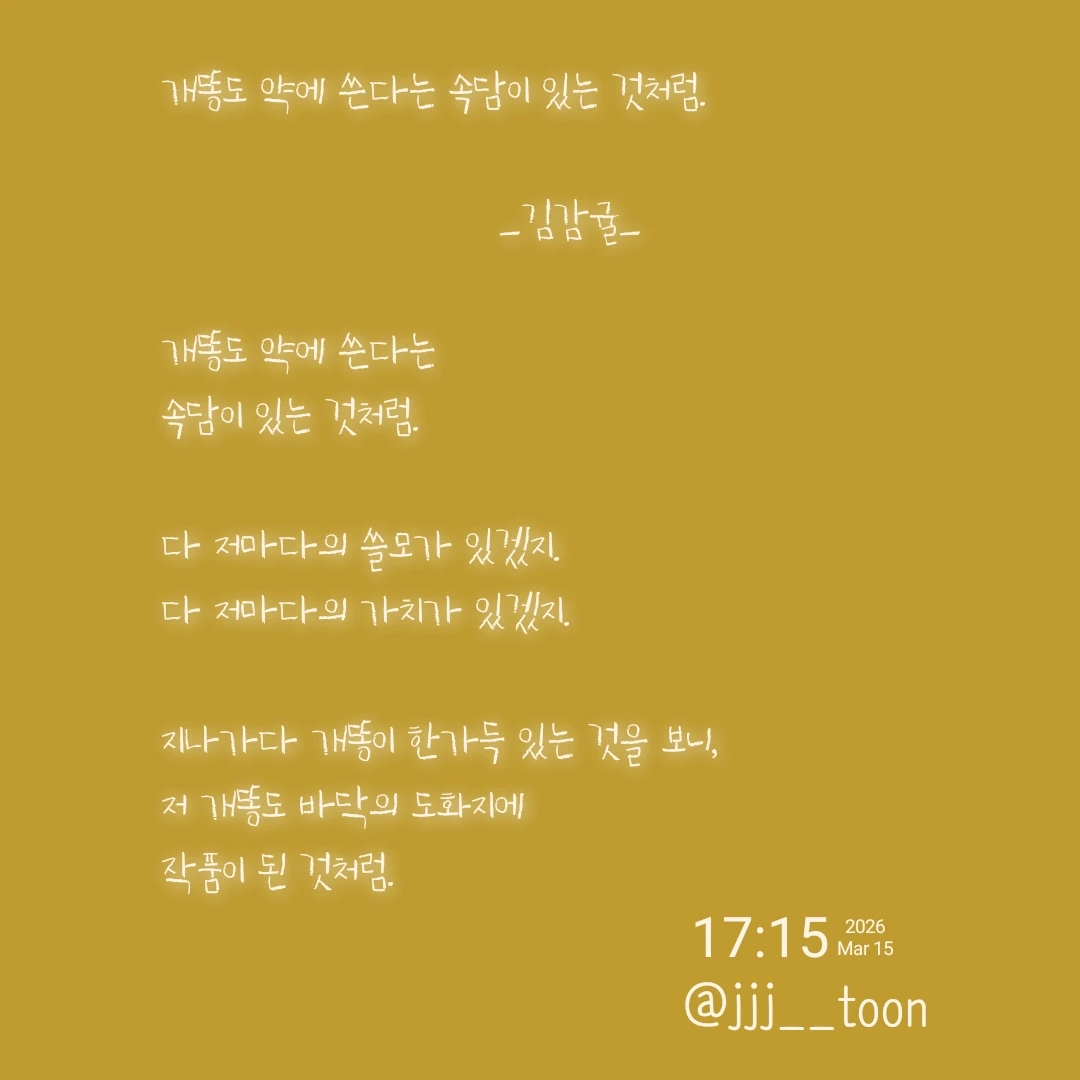 개똥도 약에 쓴다는 속담이 있는 것처럼.
_김감귤_
개똥도 약에 쓴다는
속담이 있는 것처럼.
다 저마다의 쓸모가 있겠지.
다 저마다의 가치가 있겠지.
지나가다 개똥이 한가득 있는 것을 보니,
저 개똥도 바닥의 도화지에
작품이 된 것처럼.
17:15 2026
Mar 15
@jjj__toon